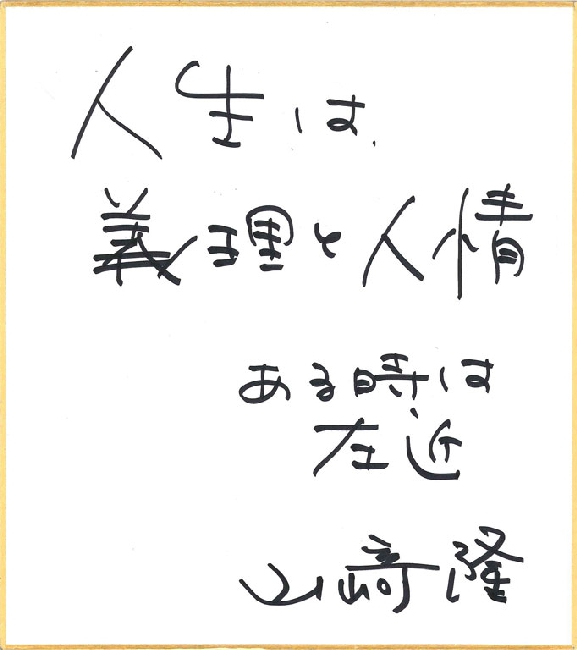 人生は
義理と人情
ある時は
左近
山﨑隆